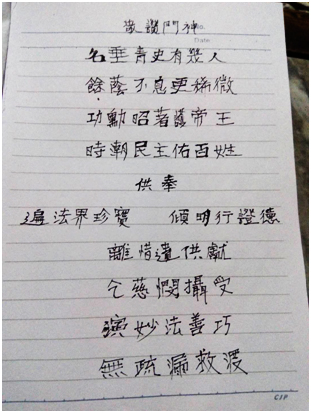 敬讚門神
No.
Date
名垂青史有幾人
餘蔭不息更稀微
功勳昭著蔭帝王
時朝民主佑百姓
供奉
遍法界珍寶 傾明行證德
離惜遺供獻
乞慈憫攝受
演妙法善巧
無疏漏救渡